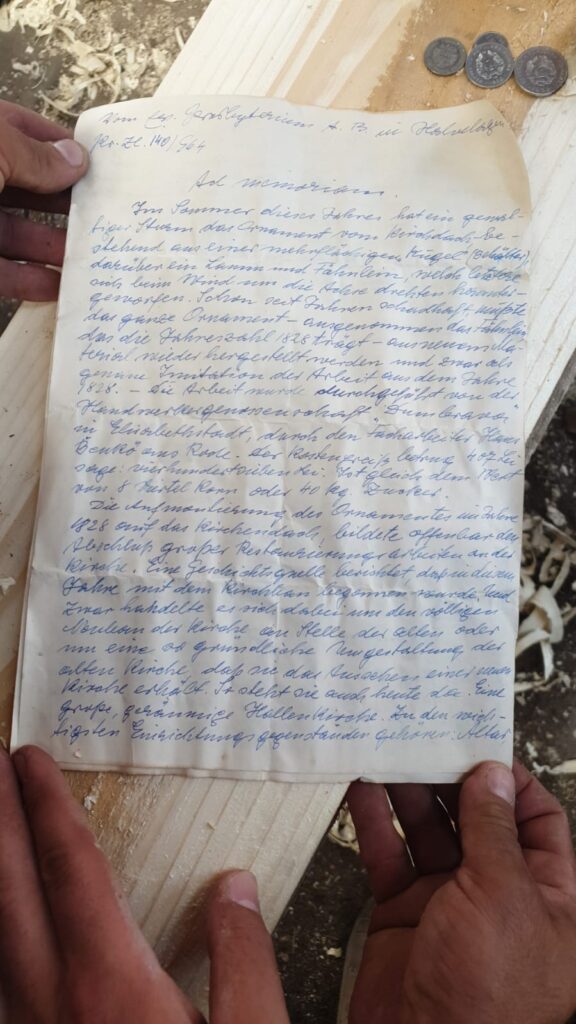 Vom ev. Presbyterium A. B. in Hohndorf
Pr. Zl. 140/964
Ad memoriam.
Im Sommer dieses Jahres hat ein gewal-
tiger Sturm das Ornament vom Kirchdach, be-
stehend aus einer mehrflächigen Kugel (Behälter)
darüber ein Lamm und Fähnlein, welch letztere
sich beim Wind um die Achse drehten herunter-
geworfen. Schon seit Jahren schadhaft mußte
das ganze Ornament - ausgenommen das Fähnlein
das die Jahreszahl 1828 trägt - aus neuem Ma-
terial wieder hergestellt werden und zwar als
genaue Imitation der Arbeit aus dem Jahre
1828. - Die Arbeit wurde durchgeführt von der
Handwerkergenossenschaft "Dumbrava"
in Elisabethstadt, durch den Facharbeiter
Benkö aus Rode. Der Kostenpreis betrug 407 Lei
sage: vierhundertsieben Lei. Ist gleich dem Wert
von 8 Viertel Korn oder 40 kg. Zucker.
Die Aufmontierung des Ornamentes im Jahre
1828 auf das Kirchendach, bildete offenbar den
Abschluß großer Restaurierungsarbeiten an der
Kirche. Eine Geschichtsquelle berichtet daß in diesem
Jahre mit dem Kirchbau begonnen wurde, und
zwar handelte es sich dabei um den völligen
Neubau der Kirche an Stelle der alten oder
um eine so gründliche Umgestaltung der
alten Kirche, daß sie das Aussehen einer neuen
Kirche erhält. So steht sie auch heute da. Eine
große, geräumige Hallenkirche. Zu den wich-
tigsten Einrichtungsgegenständen gehören: Altar